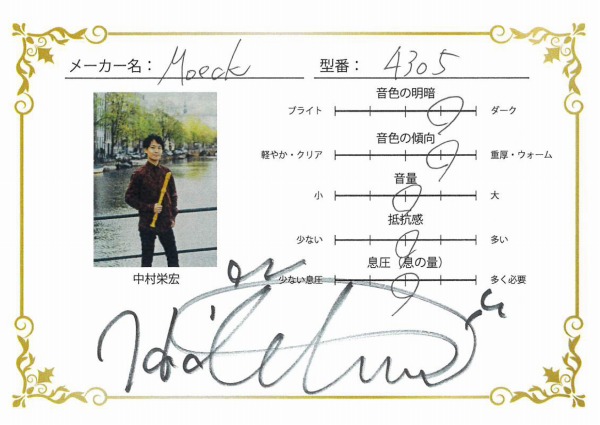 メーカー名： Moeck 型番： 4305
音色の明暗
ブライト ダーク
音色の傾向
軽やか・クリア 重厚・ウォーム
音量
小 大
抵抗感
少ない 多い
息圧（息の量）
少ない息圧 多く必要
中村栄宏